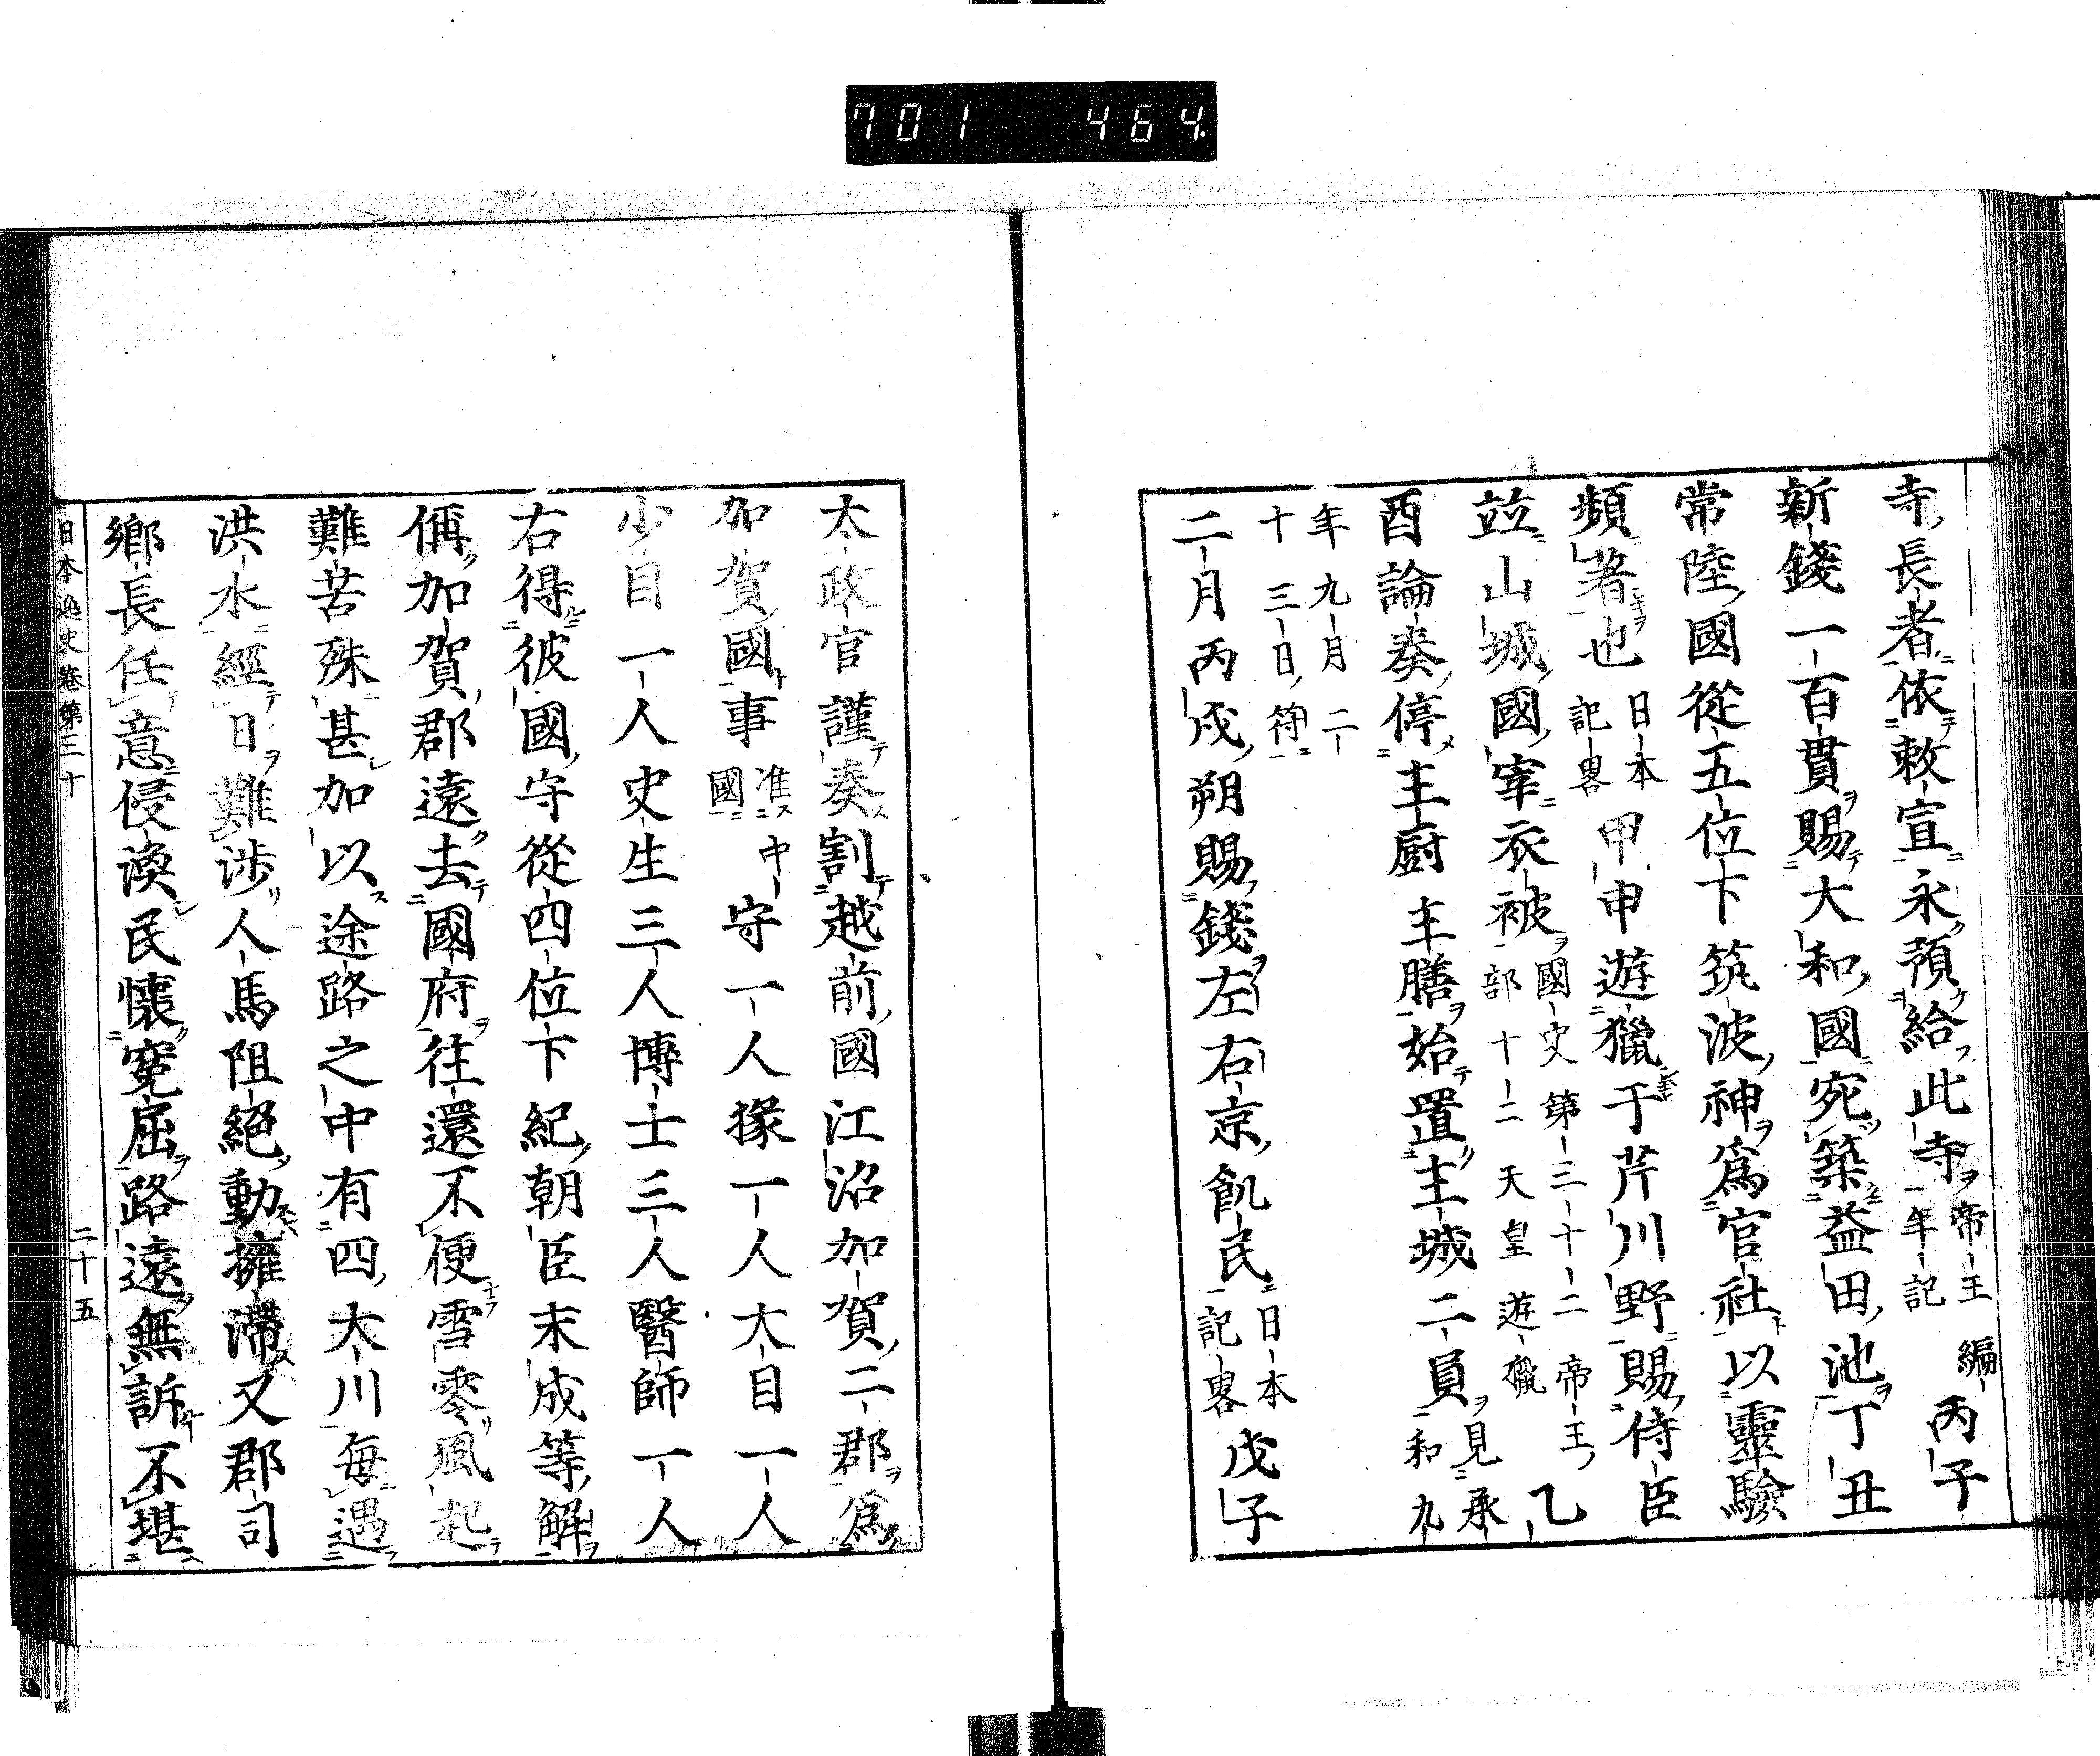 701 464
寺長者依敕宣永預給此寺帝王編一年記丙子
新錢一百貫賜大和國宛築益田池丁丑
常陸國從五位下筑波神爲官社以靈驗
頻著也日本記畧甲申遊獵于芹川野賜侍臣
竝山城國宰衣被國史第三十二帝王部十二天皇遊獵乙
酉論奏停主厨主膳始置主城二員見承和九
年九月二十三日符
二月丙戌朔賜錢左右京飢民日本記畧戊子
太政官謹奏割越前國江沼加賀二郡爲
加賀國事准中國守一人掾一人大目一人
少目一人史生三人博士三人醫師一人
右得彼國守從四位下紀朝臣末成等解
偁加賀郡遠去國府往還不便雪零風起
難苦殊甚加以途路之中有四大川每遇
洪水經日難涉人馬阻絕動擁滯又郡司
鄉長任意侵漁民懷寃屈路遠無訴不堪
日本逸史卷第三十 二十五